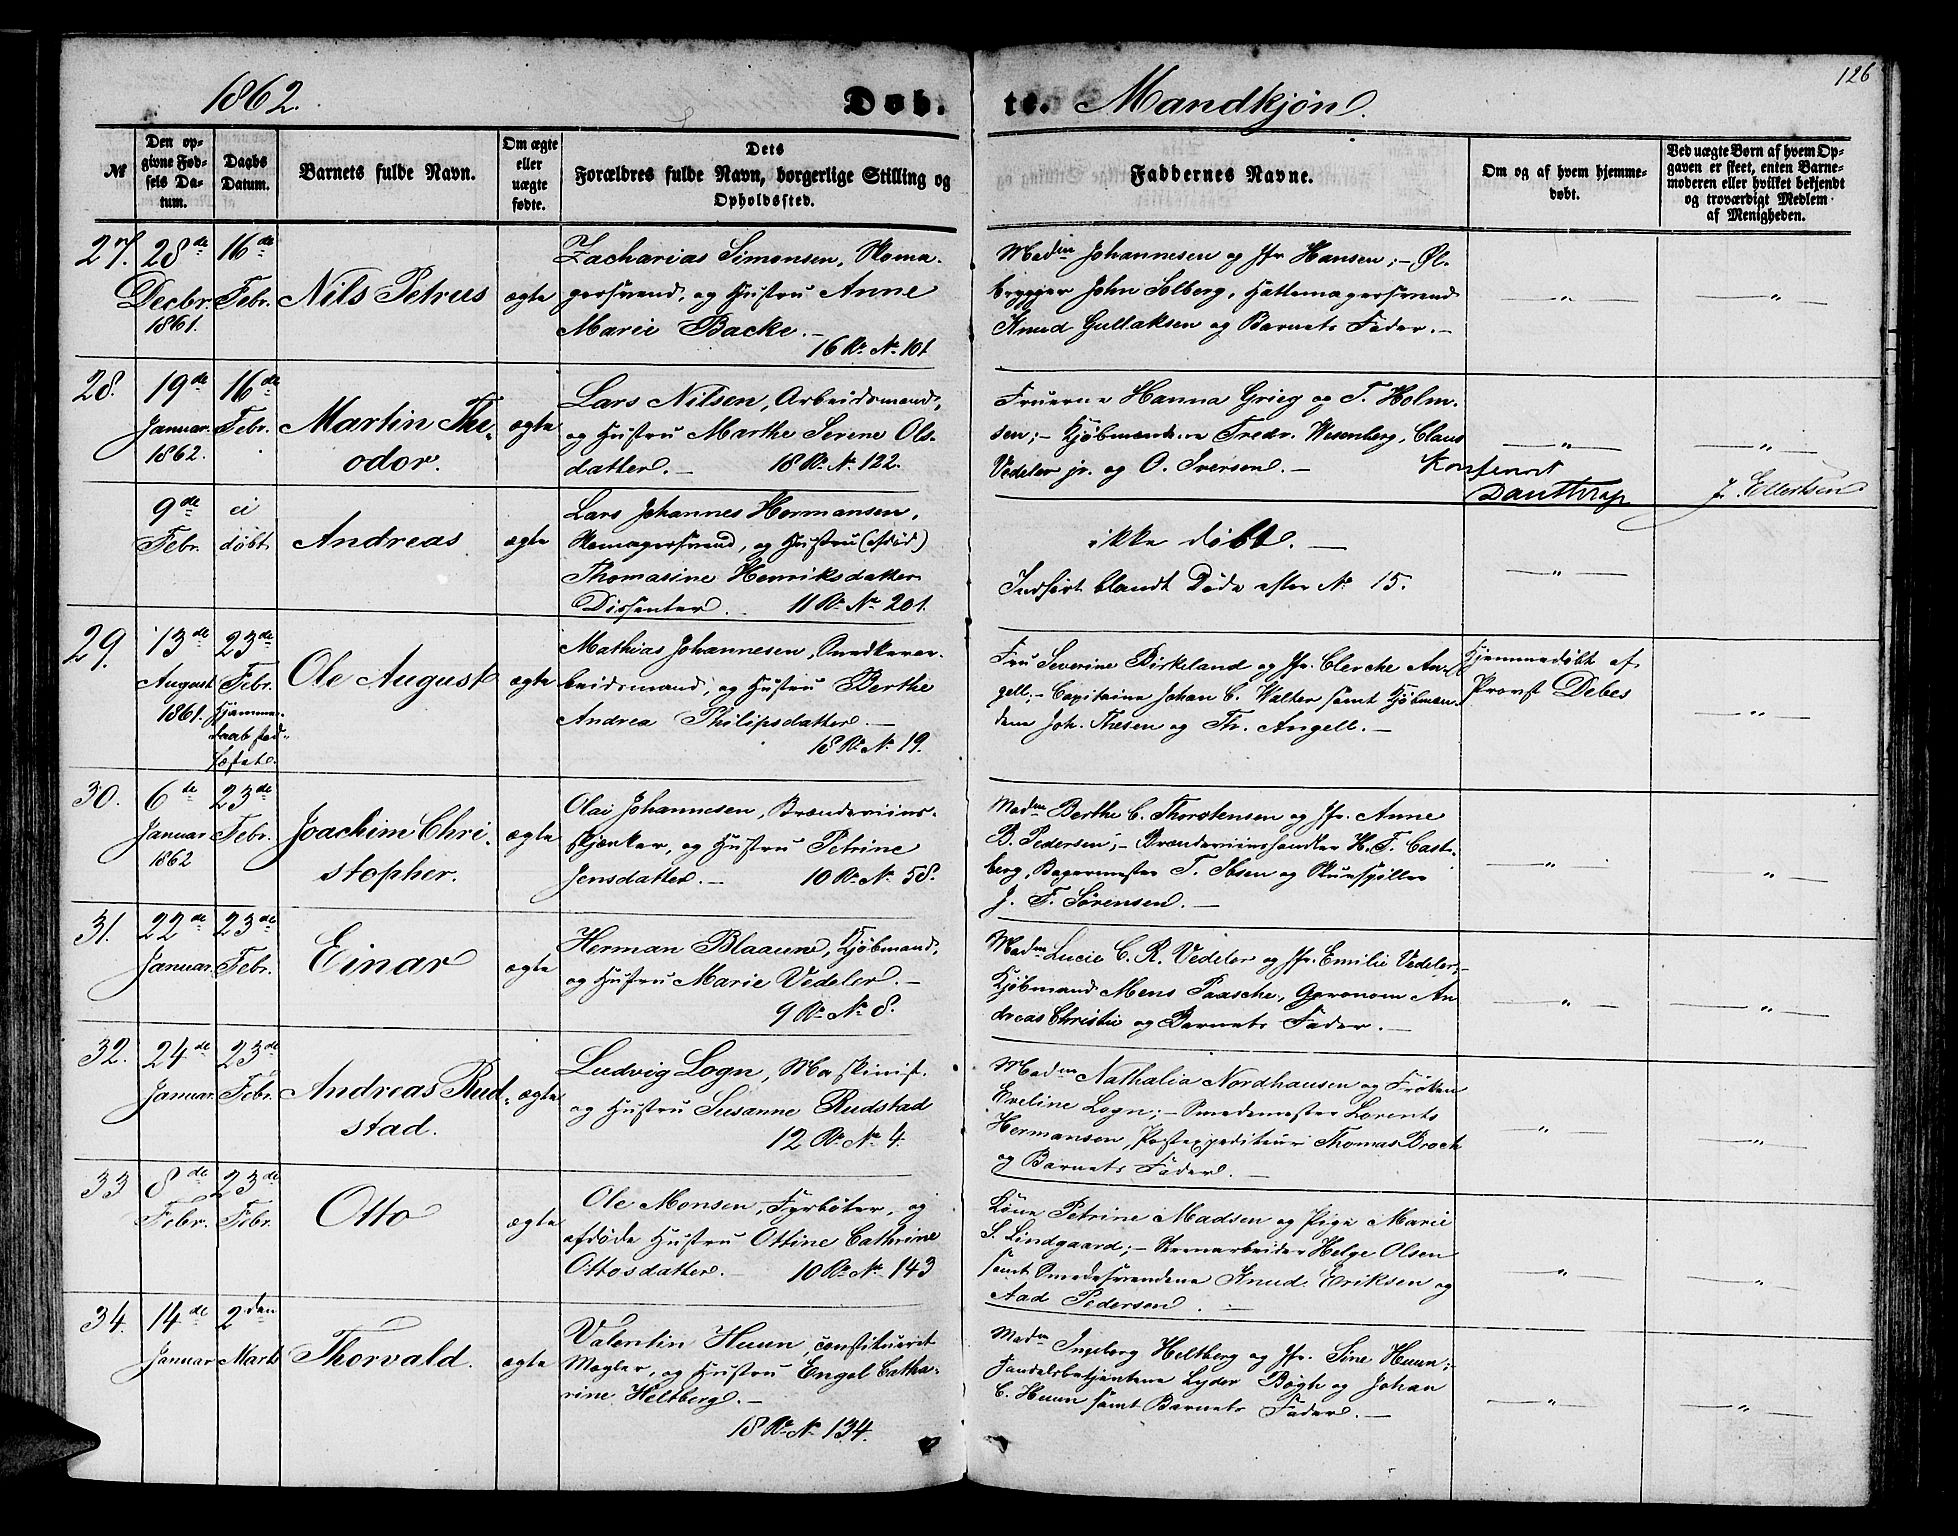 126
1862.
Døb. te. Mandkjøn.
№
Den opgivne Fødsels Datum.
Daabs Datum.
Barnets fulde Navn.
Om ægte eller uægte fødte.
Dets Forældres fulde Navn, borgerlige Stilling og Opholdssted.
Faddernes Navne.
Om og af hvem hjemmedøbt.
Ved uægte Børn af hvem Opgaven er skeet, enten Barnemoderen eller hvilket bekjendt og troværdigt Medlem af Menigheden.
27. 28de Decbr. 1861. 16de Febr. Nils Petrus ægte
Zacharias Simonsen, Skoma-
gersvend, og Hustru Anne
Marie Backe. —
16 R. № 101
Madm Johannesen og Jfr. Hansen; — Øl-
brygger John Solberg, Hattemagersvend
Knud Gullaksen og Barnets Fader. —
— " — — " —
28. 19de Januar 1862. 16de Febr. Martin The-
odor. ægte
Lars Nilsen, Arbeidsmand,
og Hustru Marthe Serene Ols-
datter. — 18 R. №. 122.
Fruerne Hanna Grieg og T. Holm-
sen; — Kjøbmændene Fredr. Wesenberg, Claus
Vedeler jr. og O. Iversen. —
— " — — " —
Konfereret
Danttrup J. Ellertsen
9de Febr. ei døbt Andreas ægte
Lars Johannes Hermansen,
Skomagersvend, og Hustru (afdød)
Thomasine Henriksdatter
Dissenter. 11 R. № 201.
ikke døbt. —
Indført blandt Døde efter № 15.
— " —
29. 13de August 1861. 23de Febr. Hjemme-
daab stad-
fæstet. Ole August ægte
Mathias Johannesen, Snedkerar-
beidsmand, og Hustru Berthe
Andrea Philipsdatter. —
18 R. №. 19.
Fru Severine Birkeland og Jfr. Clerche An-
gell; — Capitaine Johan C. Walter samt Kjøbmæn-
dene Joh. Thesen og Th. Angell. —
Hjemmedøbt af
Provst Debes
— " —
30. 6te Januar 1862 23de Febr. Joachim Chri-
stopher. ægte
Olai Johannesen, Brændeviins-
skjænker, og Hustru Petrine
Jensdatter. — 10 R. №. 58.
Madm Berthe C. Thorstensen og Jfr. Anne
B. Pedersen; — Brændeviinshandler H. F. Cast-
berg, Bagermester T. Ibsen og Skuespiller
J. F. Sørensen. —
— " — — " —
31. 22de Januar 23de Febr. Einar ægte
Herman Blaauw, Kjøbmand,
og Hustru Marie Vedeler. —
9 R. №. 8.
Madm Lucie C. R. Vedeler og Jfr. Emilie Vedeler; —
Kjøbmand Mens Paasche, Agronom An-
dreas Christie og Barnets Fader. —
— " — — " —
32. 24de Januar 23de Febr. Andreas Rud-
stad. ægte
Ludvig Logn, Maskinist.
og Hustru Susanne Rudstad
12 R. № 4.
Madm Nathalia Nordhausen og Frøken
Eveline Logn; — Smedemester Lorents
Hermansen, Postexpediteur Thomas Broch
og Barnets Fader. —
— " — — " —
33 8de Febr. 23de Febr. Otto ægte
Ole Monsen, Fyrbøter, og
afdøde Hustru Ottine Cathrine
Ottosdatter. — 10 R. № 143
Kone Petrine Madsen og Pige Marie
S. Lindgaard; — Steenarbeider Helge Olsen
samt Smedesvendene Knud Eriksen og
Aad Pedersen. —
— " — — " —
34. 14de Januar 2den Marts Thorvald. ægte
Valentin Huun, constitueret
Mægler, og Hustru Engel Catha-
rine Heltberg. —
18 R. № 134.
Madm Ingeborg Heltberg og Jfr. Sine Huun; —
Handelsbetjentene Lyder Bøgh og Johan
C. Huun samt Barnets Fader. —
— " — — " —